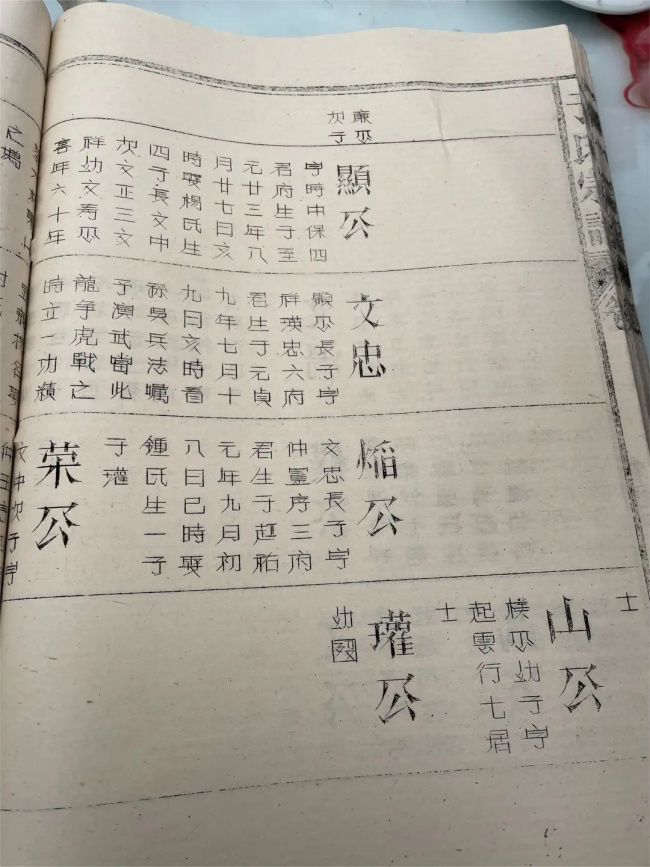 氏宗譜
廉公
次子
顯公
字時中保四
君府生于至
元廿三年八
月廿七日亥
時娶楊氏生
四子長文中
次文正三文
祥幼文壽公
享年六十年
文忠
顯公長子字
祥瑛忠六府
君生于元貞
九年七月十
九日亥時看
孫吳兵法囑
子演武當此
龍爭虎戰之
時立一功績
焰公
文忠長子字
仲靈序三府
君生于延祐
元年九月初
八日巳時娶
鍾氏生一子
子瓘
荣公
文中次子字
士
山公
樸公幼子字
起雲行七居
士
瓘公
幼